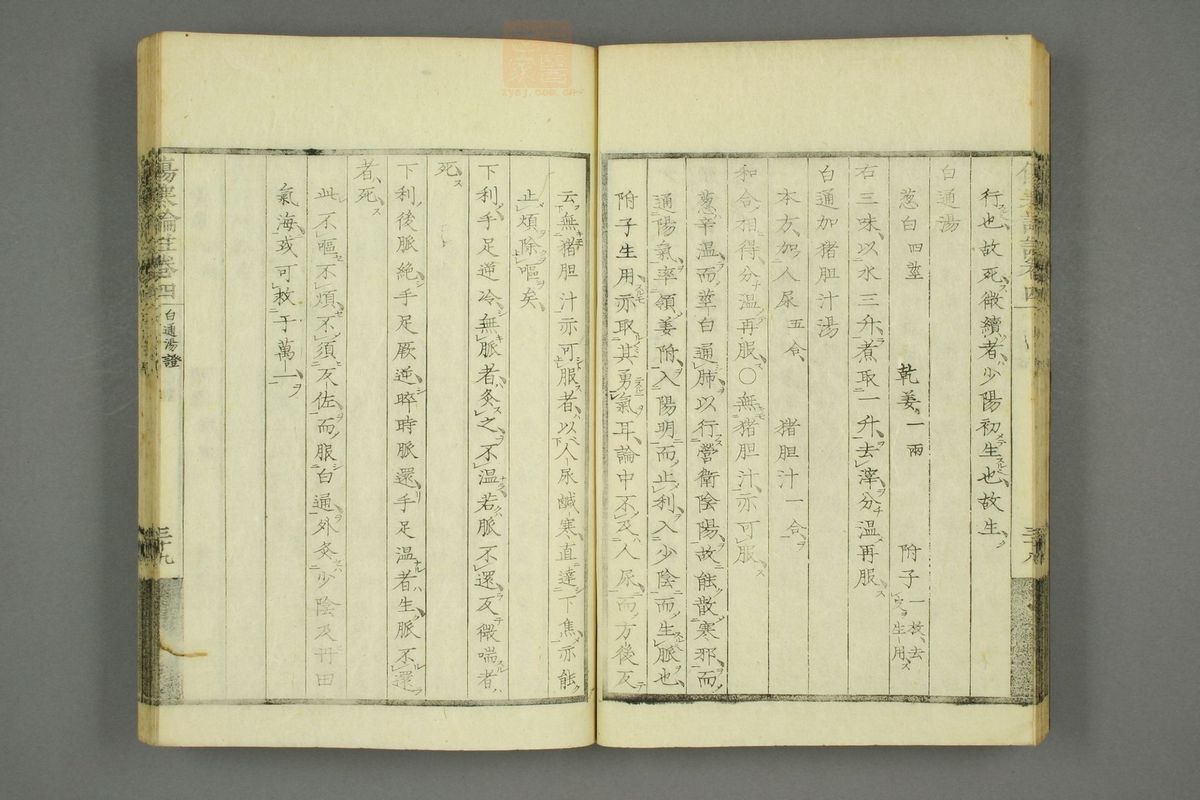 行也故死微續者少陽初生也故生
白通湯
葱白四莖 乾姜一兩 附子一枚去皮生用
右三味以水三升煮取一升去滓分温再服
白通加猪胆汁湯
本方加人尿五合 猪胆汁一合
和合相得分温再服〇無猪胆汁亦可服
葱辛温而莖白通肺以行營衛陰陽故能散寒邪而
通陽氣率領姜附入陽明而止利入少陰而生脈也
附子生用亦取其勇氣耳論中不及人尿而方後反
云無猪胆汁亦可服者以人尿鹹寒直達下焦亦能
止煩除嘔矣
下利手足逆冷無脈者灸之不温若脈不還反微喘者
死
下利後脈絶手足厥逆晬時脈還手足温者生脈不還
者死
此不嘔不煩不須反佐而服白通外灸少陰及丹田
氣海或可救于萬一
傷寒論註卷四
白通湯證
三十九
三十八
zysj.com.cn